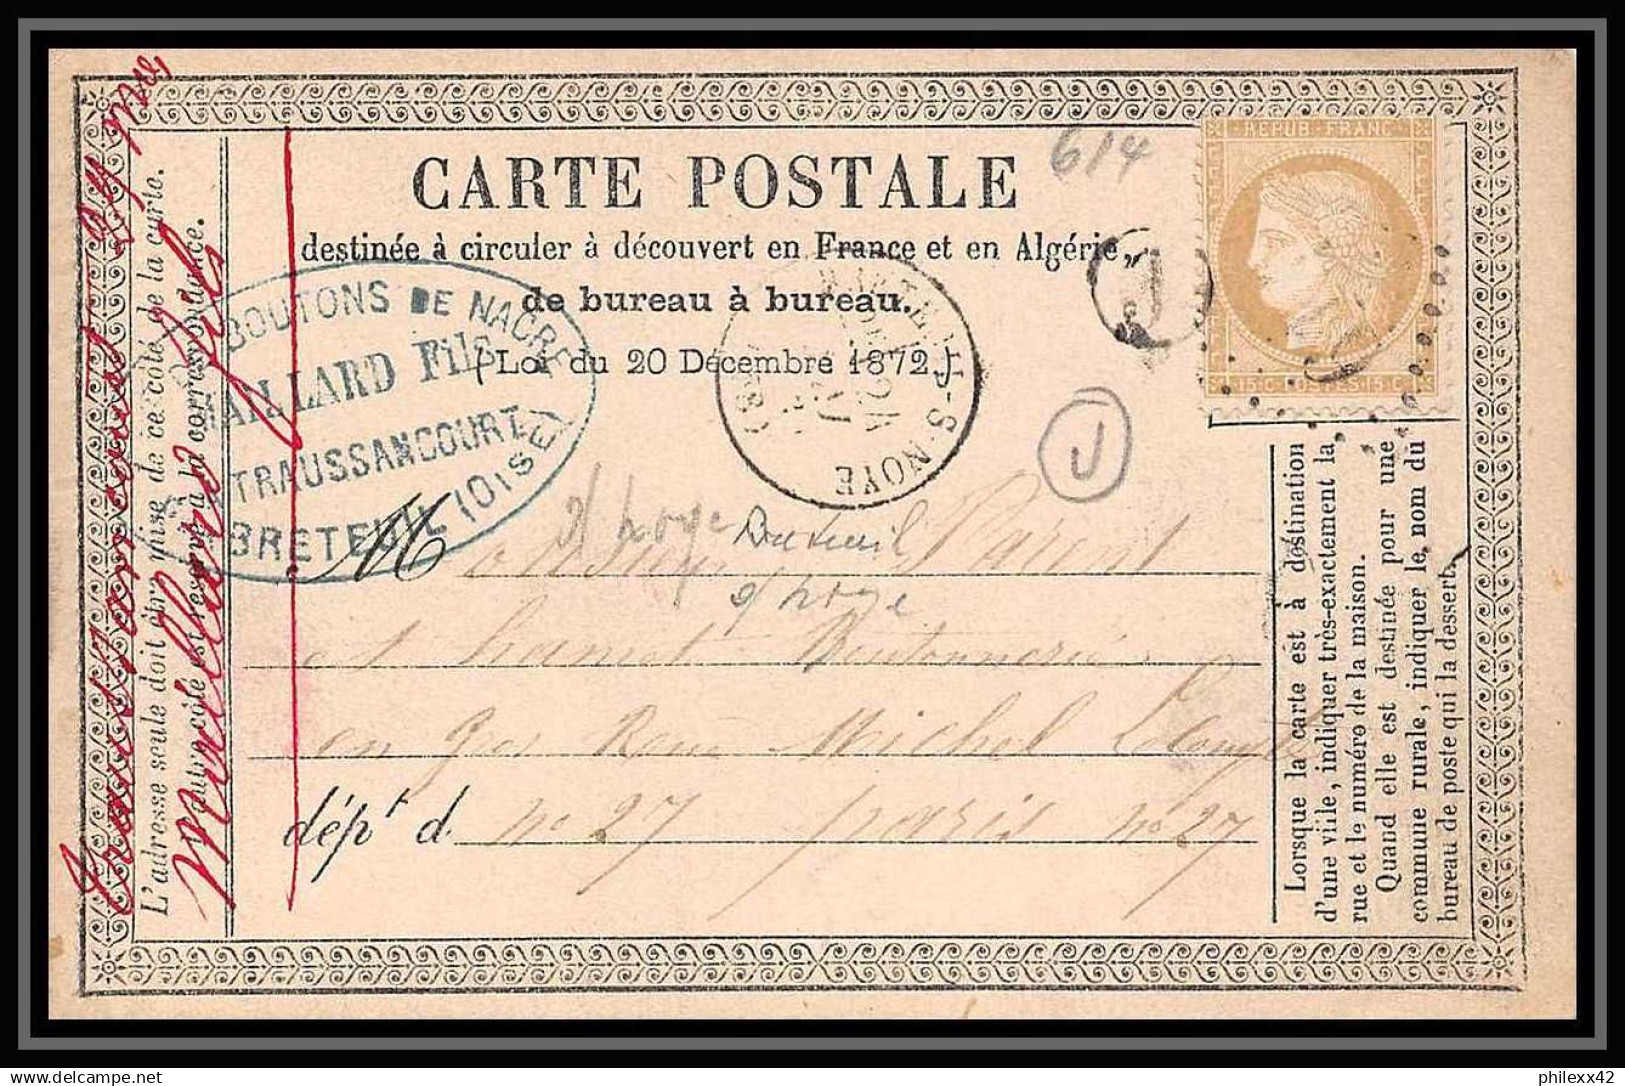 614
CARTE POSTALE
destinée à circuler à découvert en France et en Algérie,
de bureau à bureau.
(Loi du 20 Décembre 1872.)
REPUB. FRANC.
15 C. POSTES 15 C.
J
J
BOUTONS DE NACRE
MAILLARD Fils
TRAUSSANCOURT
BRETEUIL (OISE)
BRETEUIL-S-NOYE
d/ noye Breteuil
d/ noye
Monsieur Parent
et hamet Boutonnerie
en gros Rue Michel Lecomte
dépt. d no 27 paris no 27
L'adresse seule doit être mise de ce côté de la carte.
L'autre côté est réservé à la correspondance.
Lorsque la carte est à destination
d'une ville, indiquer très-exactement la
rue et le numéro de la maison.
Quand elle est destinée pour une
commune rurale, indiquer le nom du
bureau de poste qui la dessert.
philexx42
philexx42.delcampe.net